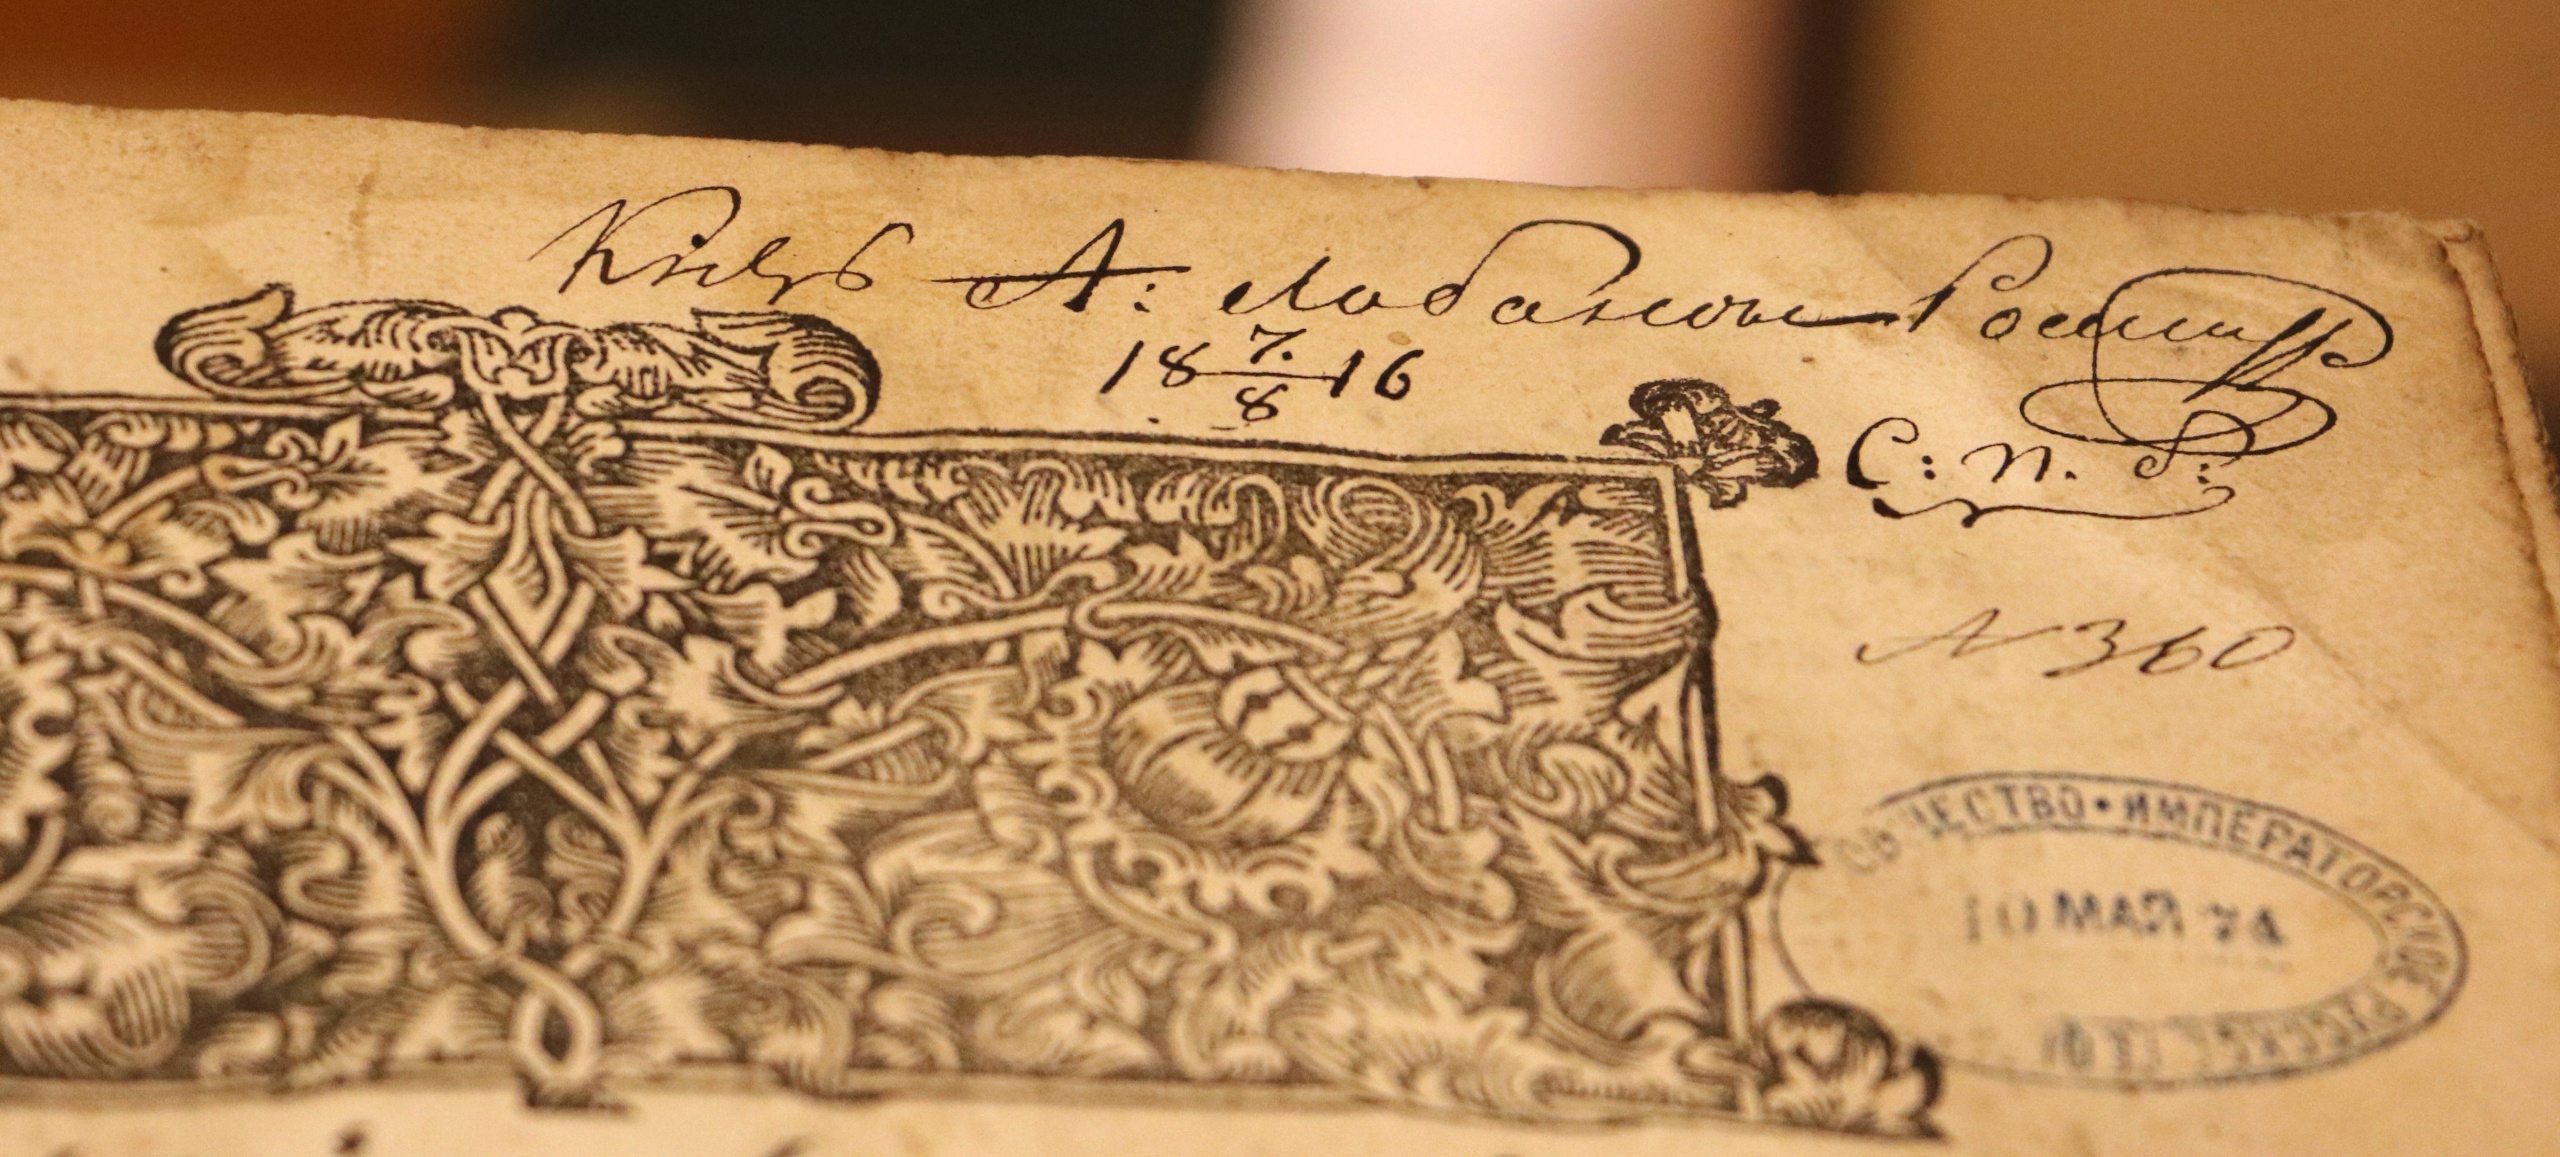 Князь А: Лобановъ Ростов
18 7./8 16
С: п. б:
N 360
ОБЩЕСТВО • ИМПЕРАТОРСКОЕ РУССКОЕ
10 МАЯ 74